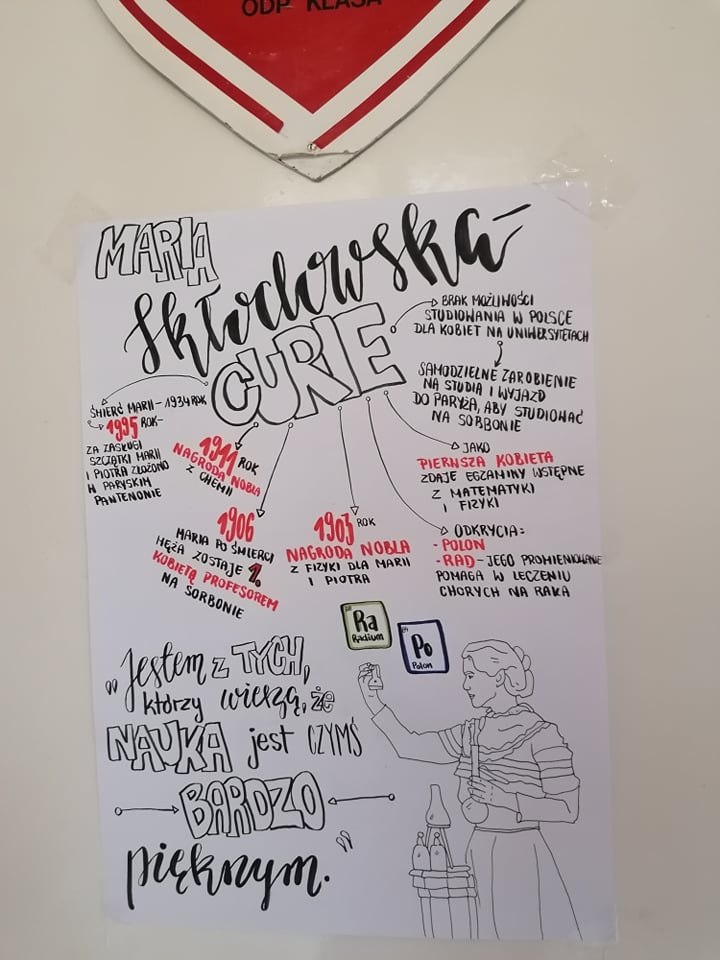 ODP KLASA
MARIA
Skłodowska-
CURIE
BRAK MOŻLIWOŚCI
STUDIOWANIA W POLSCE
DLA KOBIET NA UNIWERSYTETACH
SAMODZIELNE ZAROBIENIE
NA STUDIA I WYJAZD
DO PARYŻA, ABY STUDIOWAĆ
NA SORBONIE
JAKO
PIERWSZA KOBIETA
ZDAJE EGZAMINY WSTĘPNE
Z MATEMATYKI
I FIZYKI
ODKRYCIA:
- POLON
- RAD - JEGO PROMIENIOWANIE
POMAGA W LECZENIU
CHORYCH NA RAKA
1903 ROK
NAGRODA NOBLA
Z FIZYKI DLA MARII
I PIOTRA
1906
MARIA PO ŚMIERCI
MĘŻA ZOSTAJE 1.
KOBIETĄ PROFESOREM
NA SORBONIE
1911 ROK
NAGRODA NOBLA
Z CHEMII
ŚMIERĆ MARII - 1934 ROK
1995 ROK-
ZA ZASŁUGI
SZCZĄTKI MARII
I PIOTRA ZŁOŻONO
W PARYSKIM
PANTEONIE
88
Ra
Radium
84
Po
Polon
"Jestem z TYCH,
którzy wierzą, że
NAUKA jest CZYMŚ
BARDZO
pięknym."